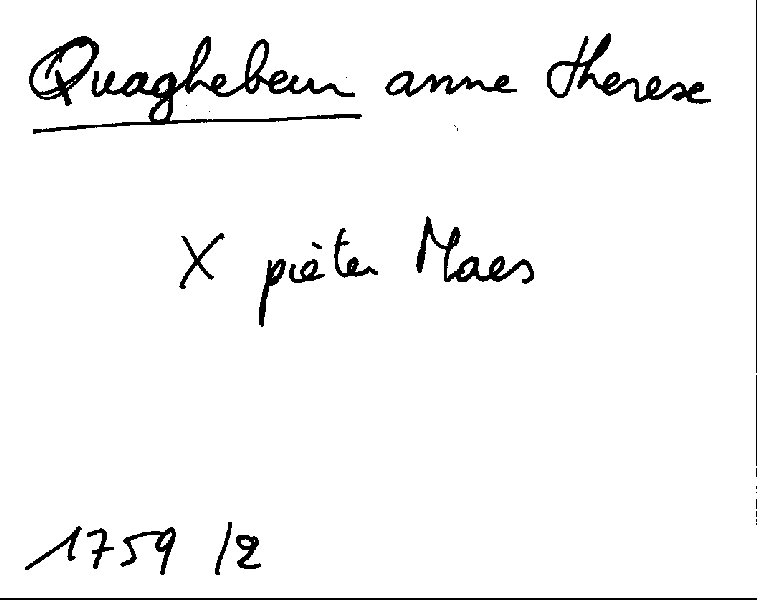 Quaghebeur anne therese
X pieter Maes
1759 /2